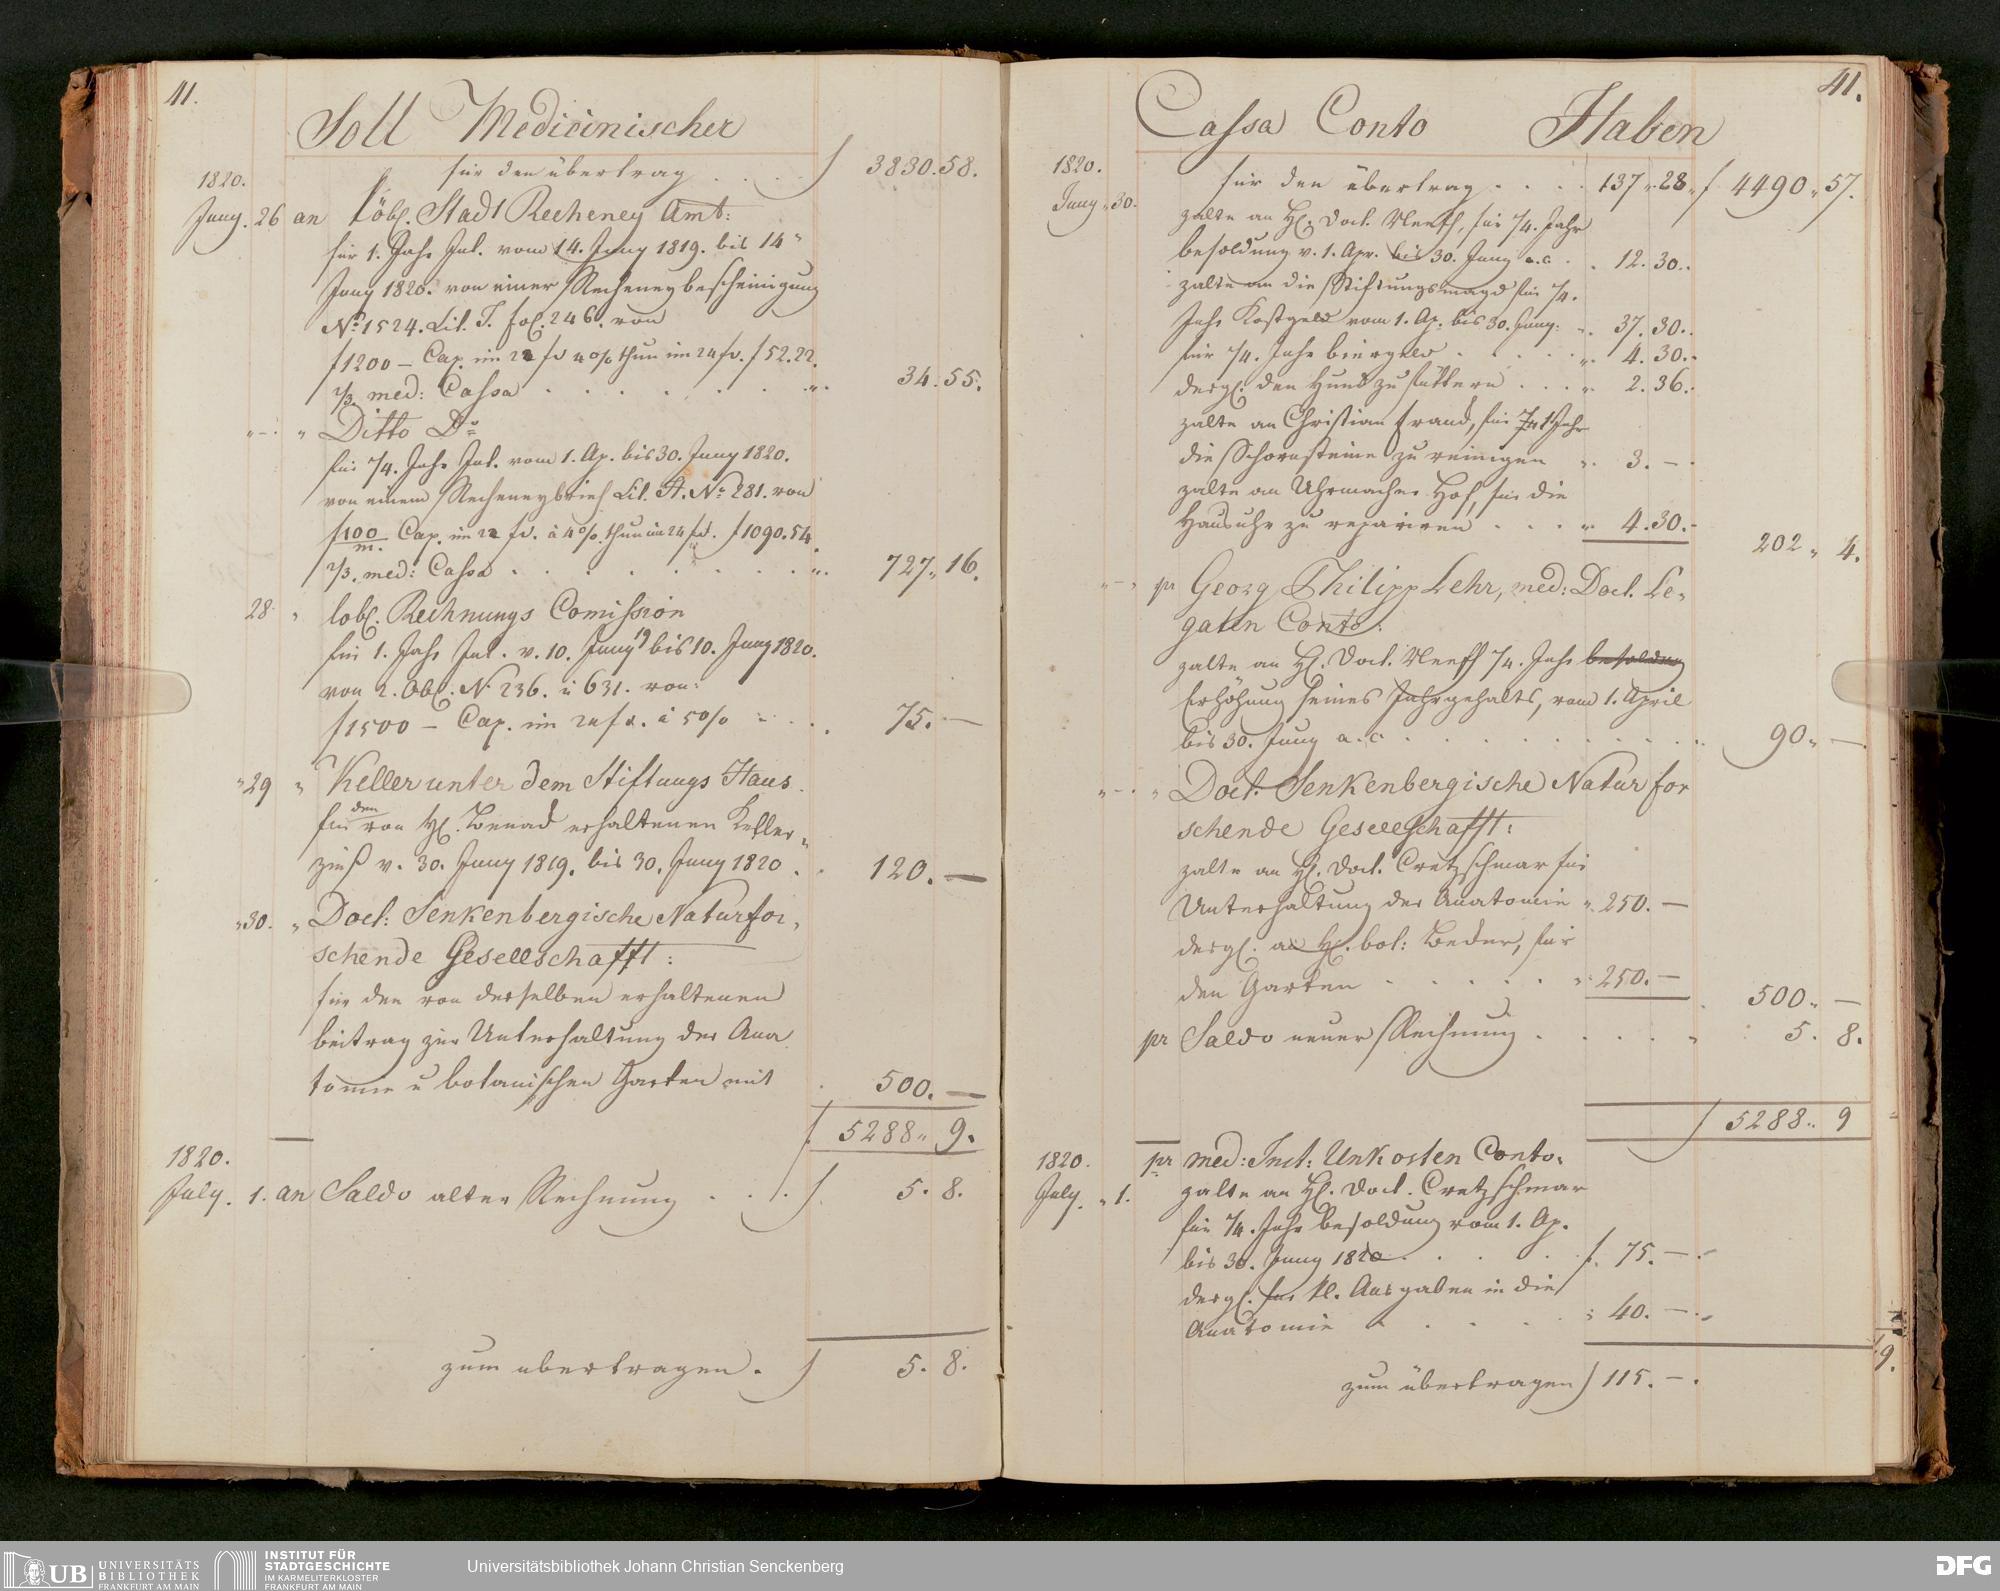 41.
Soll Medicinischer
für den übertrag . . . f 3830.58.
1820.
Juny. 26 an Löbl. Stadt Recheney Amt:
für 1. Jahr Int. vom 14. Juny 1819. bis 14"
Juny 1820. von einer Recheneybescheinigung
No. 1524. Lit. T. fol. 246. von
f 1200 – Cap. im 22 fr 4 0/0 thun im 24 fr. f 52.22.
2/3. med: Cassa . . . . . . . 34.55.
" – " Ditto Do
für 1/4. Jahr Int. vom 1. Ap. bis 30. Juny 1820.
von einem Recheneybrief Lit. A. No 281. von
f 100/m. Cap. im 22 fr. à 4 0/0. thun im 24 fr. f 1090.54.
2/3. med: Cassa . . . . . . . 727" 16.
28. " löbl. Rechnungs Comission
für 1. Jahr Int. v. 10. Juny 19 bis 10. Juny 1820.
von 2. Obl. No 236. u 631. von:
f 1500 – Cap. im 24 fr. à 5 0/0 . . . 75. –
" 29 " Keller unter dem Stiftungs Haus.
für den von H. erhaltenen Keller,,
zinß v. 30. Juny 1819. bis 30. Juny 1820 . . 120. –
" 30. " Doct: Senkenbergische Naturfor,,
schende Gesellschafft:
für den von derselben erhaltenen
beitrag zur Unterhaltung der Ana
tomie u botanischen Garten mit . 500. –
f. 5288" 9.
1820.
July. 1. an Saldo alter Rechnung . . . f. 5. 8.
zum übertragen . f 5. 8.
41.
Cassa Conto Haben
1820.
Juny " 30. für den übertrag . . . . 137 " 28 " f 4490 " 57.
zalte an H. Doct. Neeff, für 1/4. Jahr
besoldung v. 1. Apr. bis 30. Juny a.c. . . 12. 30..
zalte an die Stiftungsmagd für 1/4.
Jahr Kostgeld vom 1. Ap. bis 30. Juny: ". 37. 30..
für 1/4. Jahr biergeld . . . . . ". 4. 30..
dergl. den Hund zu füttern . . . ". 2. 36..
zalte an Christian Brand, für 1/4 Jahr
die Schornsteine zu reinigen ". 3. – .
zalte an Uhrmacher Hof, für die
Hausuhr zu repariren . . . ". 4. 30. –
202 " 4.
" – " pr Georg Philipp Lehr, med: Doct. Le,,
gaten Conto.
zalte an H. Doct. Neeff 1/4. Jahr besoldung
Erhöhung seines Jahrgehalts, vom 1. April
bis 30. Juny a.c . . . . . . . . 90" –
" – " Doct: Senkenbergische Naturfor
schende Gesellschafft:
zalte an H. Doct. Cretzschmar für
Unterhaltung der Anatomie ". 250. –
dergl. an H. bot: Becker, für
den Garten . . . . . ". 250. –
500" –
pr Saldo neuer Rechnung . . . . . 5. 8.
f 5288" 9
1820.
July. " 1. pr med: Inst: Unkosten Conto.
zalte an H. Doct. Cretzschmar
für 1/4. Jahr besoldung vom 1. Ap.
bis 30. Juny 1820 . . . . f. 75. – .
dergl. für kl. Ausgaben in die
Anatomie . . . . . : 40. – .
zum übertragen f 115. – .
9.
UB UNIVERSITÄTS
BIBLIOTHEK
FRANKFURT AM MAIN
INSTITUT FÜR
STADTGESCHICHTE
IM KARMELITERKLOSTER
FRANKFURT AM MAIN
Universitätsbibliothek Johann Christian Senckenberg
DFG